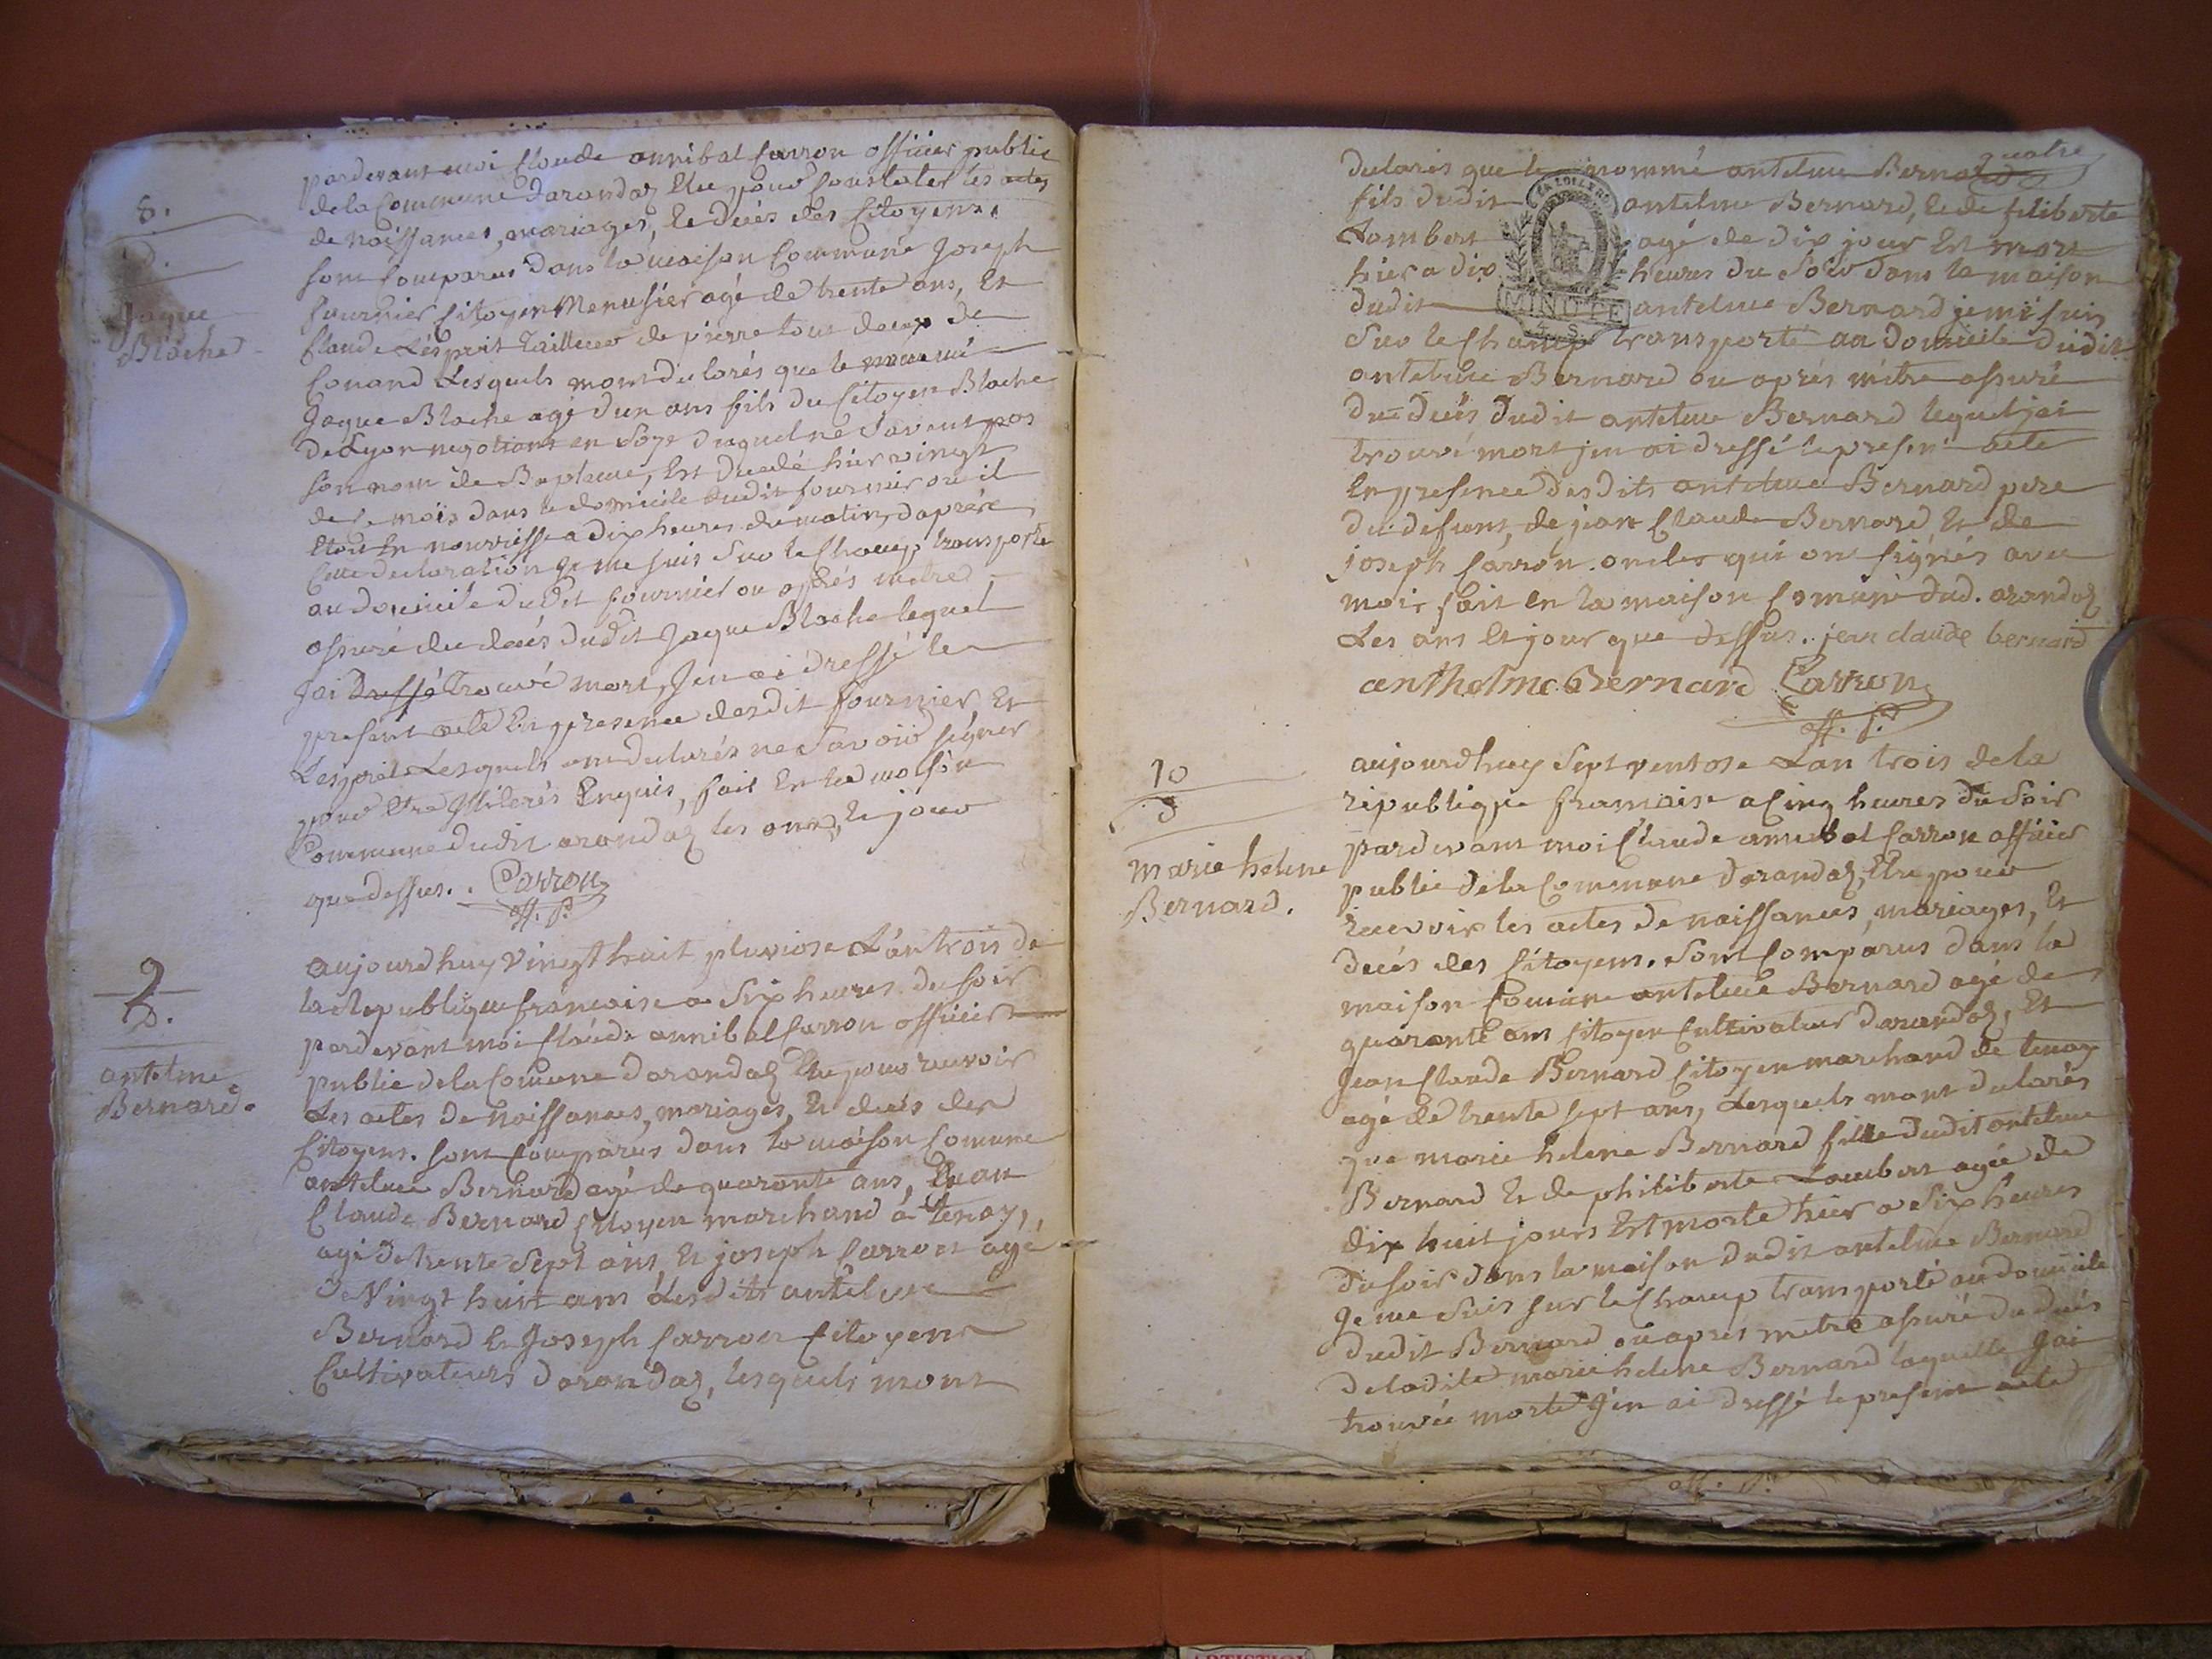 8.
D.
Jaque
Blache
pardevant moi Claude annibal Carron officier public
de la Commune darandas Elu pour Constater les actes
de naissances, mariages, et deces des Citoyens.
sont Comparus dans la maison Commune Joseph
fournier Citoyen Menusier agé de trente ans, Et
Claude Lesprit tailleur de pierre tout deux de
Conand Lesquels mont declarés que le nommé
Jaque Blache agé dun ans fils du Citoyen Blache
de Lyon negotiant en Soye duquel ne Savent pas
son nom de Bapteme, Est decedé hier vingt
de Ce mois dans le domicile dudit fournier ou il
Etoit En nourrisse a dix heures du matin, daprés
Cette declaration Je me suis Sur le Champ transporté
au domicile dudit fournier ou aprés metre
assuré du decés dudit Jaque Blache lequel
Jai Dressé trouvé mort, Jen ai dressé le
present acte En presence desdit fournier Et
Lesprit Lesquels ont declarés ne Savoir signer
pour Etre Illiterés Enquis, fait En la maison
Commune dudit arandas les ans, et jour
que dessus. Carron
off. p.
9
D.
antelme
Bernard.
aujourdhuy vingt huit pluviose L'an trois de
la Republique francaise a Six heures du soir
pardevant moi Claude annibal Carron officier
public de la Comune darandas Elu pour recevoir
Les actes de Naissances, mariages, et decés des
Citoyens. sont Comparus dans la maison Comune
antelme Bernard agé de quarante ans, Jean
Claude Bernard Citoyen marchand a tenay,
agé de trente Sept ans, et joseph Carron agé
de Vingt huit ans Lesdits antelme
Bernard et Joseph Carron Citoyens
Cultivateurs darandas, lesquels mont
quatre
declarés que le nommé antelme Bernard
fils dudit antelme Bernard, et de filiberte
Lombert agé de dix jour Est mort
hier a dix heures du Soir dans la maison
dudit antelme Bernard je me suis
Sur le Champ transporté au Domicile dudit
antelme Bernard ou aprés mêtre assuré
du decés dudit antelme Bernard lequel jai
trouvé mort jen ai dressé le present acte
En presence desdits antelme Bernard pere
du defunt, de jean Claude Bernard, Et de
joseph Carron. oncles qui ont signés avec
moi, fait En la maison Comune dud. arandas
Les ans Et jour que dessus. jean claude bernard
anthelme Bernard Carron
off. p.
MINUTE
10
D
marie helene
Bernard.
aujourdhuy Sept ventose Lan trois de la
republique francaise a Cinq heures du Soir
pardevant moi Claude annibal Carron officier
public de la Commune darandas, Elu pour
recevoir les actes de naissances, mariages, Et
decés des Citoyens. Sont Comparus dans la
maison Comune antelme Bernard agé de
quarante ans Citoyen Cultivateur darandas, Et
Jean Claude Bernard Citoyen marchand de tenay
agé de trente sept ans, Lesquels mont declarés
que marie helene Bernard fille dudit antelme
Bernard et de philiberte Lombert agée de
dix huit jours Est morte hier a Six heures
du soir dans la maison dudit antelme Bernard
Je me Suis sur le Champ transporté au domicile
dudit Bernard ou aprés metre assuré du decés
de ladite marie helene Bernard laquelle Jai
trouvée morte Jen ai dressé le present acte
off. p.